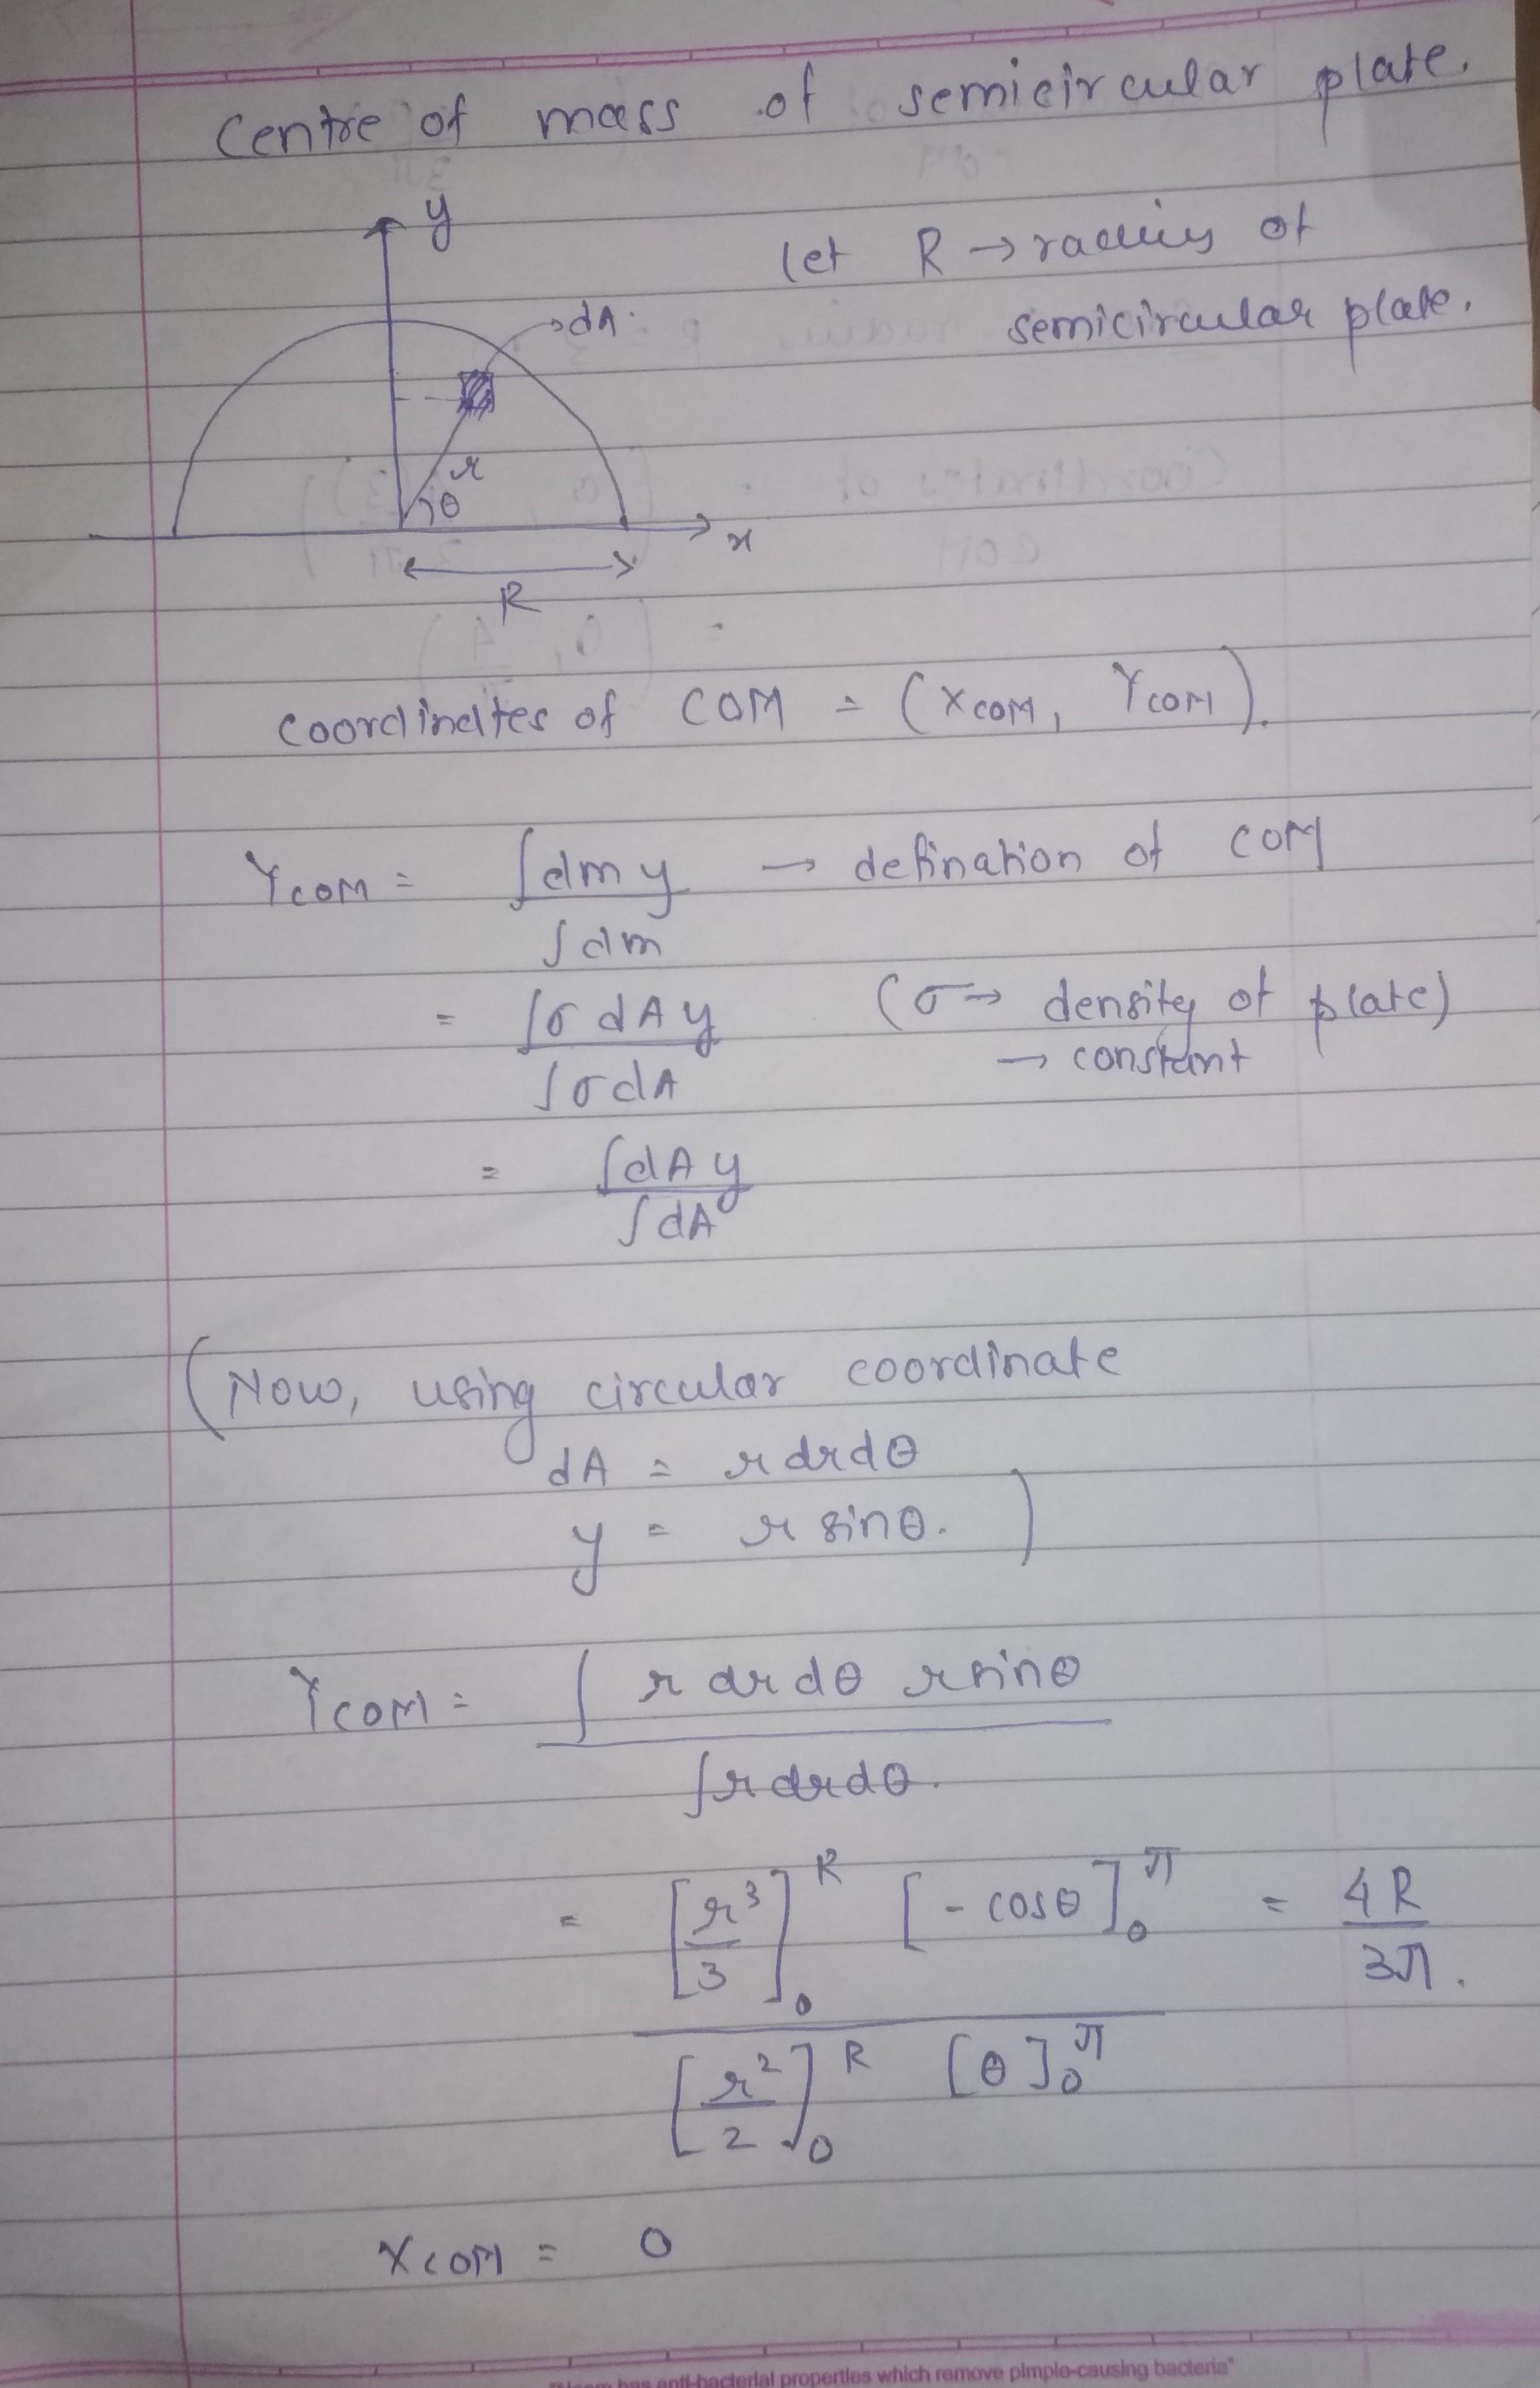 Centre of mass of semicircular plate.
y
let R → radius of
semicircular plate.
dA
r
θ
x
R
coordinates of COM = (XCOM, YCOM).
YCOM = ∫dm y / ∫dm → defination of COM
= ∫σ dA y / ∫σ dA (σ → density of plate)
→ constant
= ∫dA y / ∫dA
(Now, using circular coordinate
dA = r dr dθ
y = r sinθ. )
YCOM = ∫ r dr dθ r sinθ / ∫ r dr dθ.
= [r³/3]₀ᴿ [- cosθ]₀^π / [r²/2]₀ᴿ [θ]₀^π = 4R/3π.
XCOM = 0
has anti-bacterial properties which remove pimple-causing bacteria"